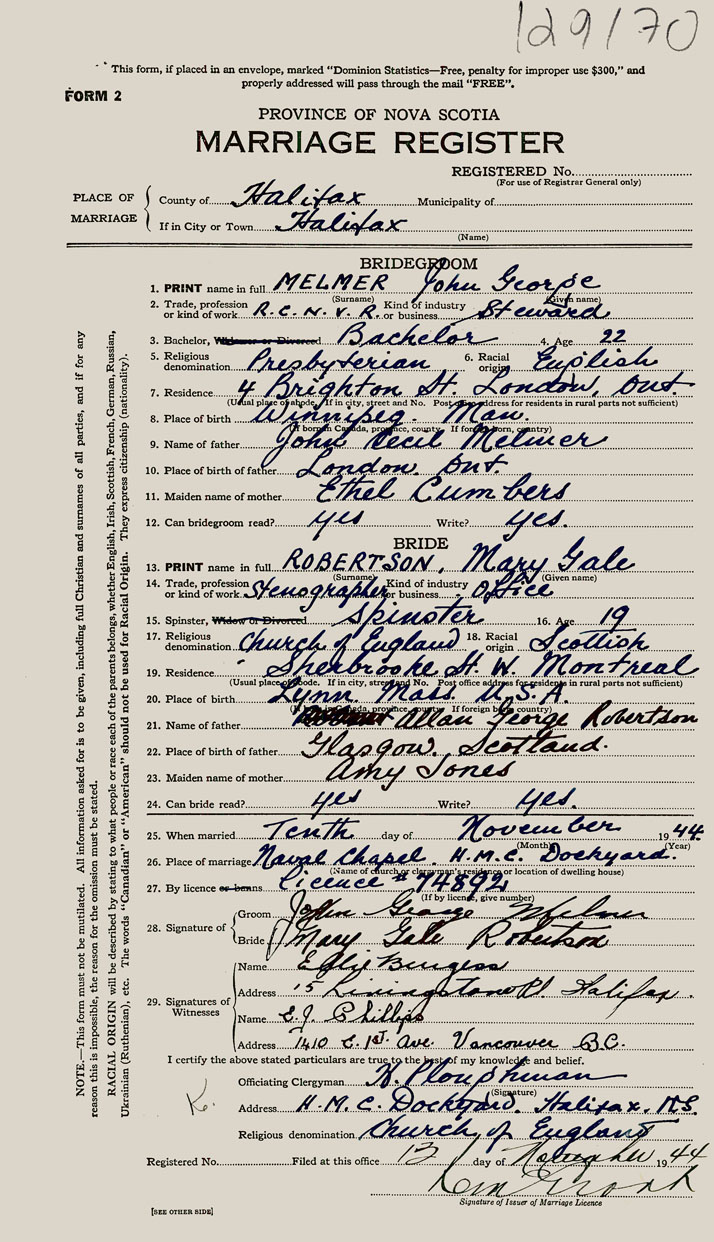 129/70
This form, if placed in an envelope, marked “Dominion Statistics—Free, penalty for improper use $300,” and
properly addressed will pass through the mail “FREE”.
FORM 2
PROVINCE OF NOVA SCOTIA
MARRIAGE REGISTER
REGISTERED No.
(For use of Registrar General only)
PLACE OF MARRIAGE
County of Halifax Municipality of
If in City or Town Halifax
(Name)
BRIDEGROOM
1. PRINT name in full MELMER John George
(Surname) (Given name)
2. Trade, profession or kind of work R.C.N.V.R. Kind of industry or business Steward
3. Bachelor, Widower or Divorced Bachelor 4. Age 22
5. Religious denomination Presbyterian 6. Racial origin English
7. Residence 4 Brighton St. London, Ont.
(Usual place of abode. If in city, street and No. Post office address for residents in rural parts not sufficient)
8. Place of birth Winnipeg. Man.
(If born in Canada, province, county. If foreign born, country)
9. Name of father John Cecil Melmer
10. Place of birth of father London. Ont.
11. Maiden name of mother Ethel Cumbers
12. Can bridegroom read? yes Write? yes.
BRIDE
13. PRINT name in full ROBERTSON, Mary Gale
(Surname) (Given name)
14. Trade, profession or kind of work Stenographer Kind of industry or business Office
15. Spinster, Widow or Divorced Spinster 16. Age 19
17. Religious denomination Church of England 18. Racial origin Scottish
19. Residence Sherbrooke St. W. Montreal
(Usual place of abode. If in city, street and No. Post office address for residents in rural parts not sufficient)
20. Place of birth Lynn. Mass. U.S.A.
(If born in Canada, province, county. If foreign born, country)
21. Name of father Allan George Robertson
22. Place of birth of father Glasgow. Scotland.
23. Maiden name of mother Amy Jones
24. Can bride read? yes Write? yes.
25. When married Tenth day of November 1944
(Month) (Year)
26. Place of marriage Naval Chapel. H.M.C. Dockyard.
(Name of church or clergyman's residence or location of dwelling house)
27. By licence or banns Licence # 74892
(If by license, give number)
28. Signature of
Groom John George Melmer
Bride Mary Gale Robertson
29. Signatures of Witnesses
Name Effie Burgess
Address 15 Livingstone Pl. Halifax.
Name E.J. Phillips
Address 1410 E. 1st. Ave. Vancouver B.C.
I certify the above stated particulars are true to the best of my knowledge and belief.
Officiating Clergyman H. Ploughman
(Signature)
K.
Address H.M.C. Dockyard. Halifax. N.S.
Religious denomination Church of England
Registered No. Filed at this office 13 day of November 1944
Signature of Issuer of Marriage Licence
[SEE OTHER SIDE]
NOTE.—This form must not be mutilated. All information asked for is to be given, including full Christian and surnames of all parties, and if for any
reason this is impossible, the reason for the omission must be stated.
RACIAL ORIGIN will be described by stating to what people or race each of the parents belongs, whether English, Irish, Scottish, French, German, Russian,
Ukrainian (Ruthenian), etc. The words “Canadian” or “American” should not be used for Racial Origin. They express citizenship (nationality).